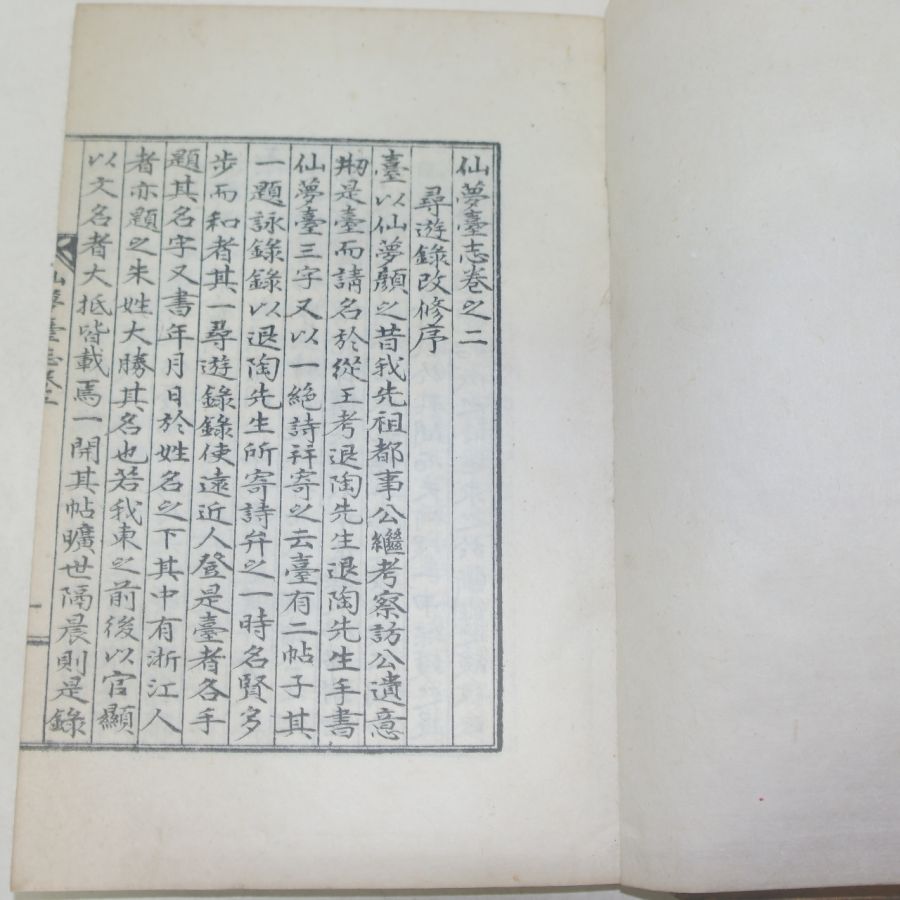 仙夢臺志卷之二
尋遊錄改修序
臺以仙夢顏之昔我先祖都事公繼考察訪公遺意
刱是臺而請名於從王考退陶先生退陶先生手書
仙夢臺三字又以一絶詩拜寄之云臺有二帖子其
一題詠錄錄以退陶先生所寄詩弁之一時名賢多
步而和者其一尋遊錄錄使遠近人登是臺者各手
題其名字又書年月日於姓名之下其中有浙江人
者亦題之朱姓大勝其名也若我東之前後以官顯
以文名者大抵皆載焉一開其帖曠世隔晨則是錄
仙夢臺志卷二 一